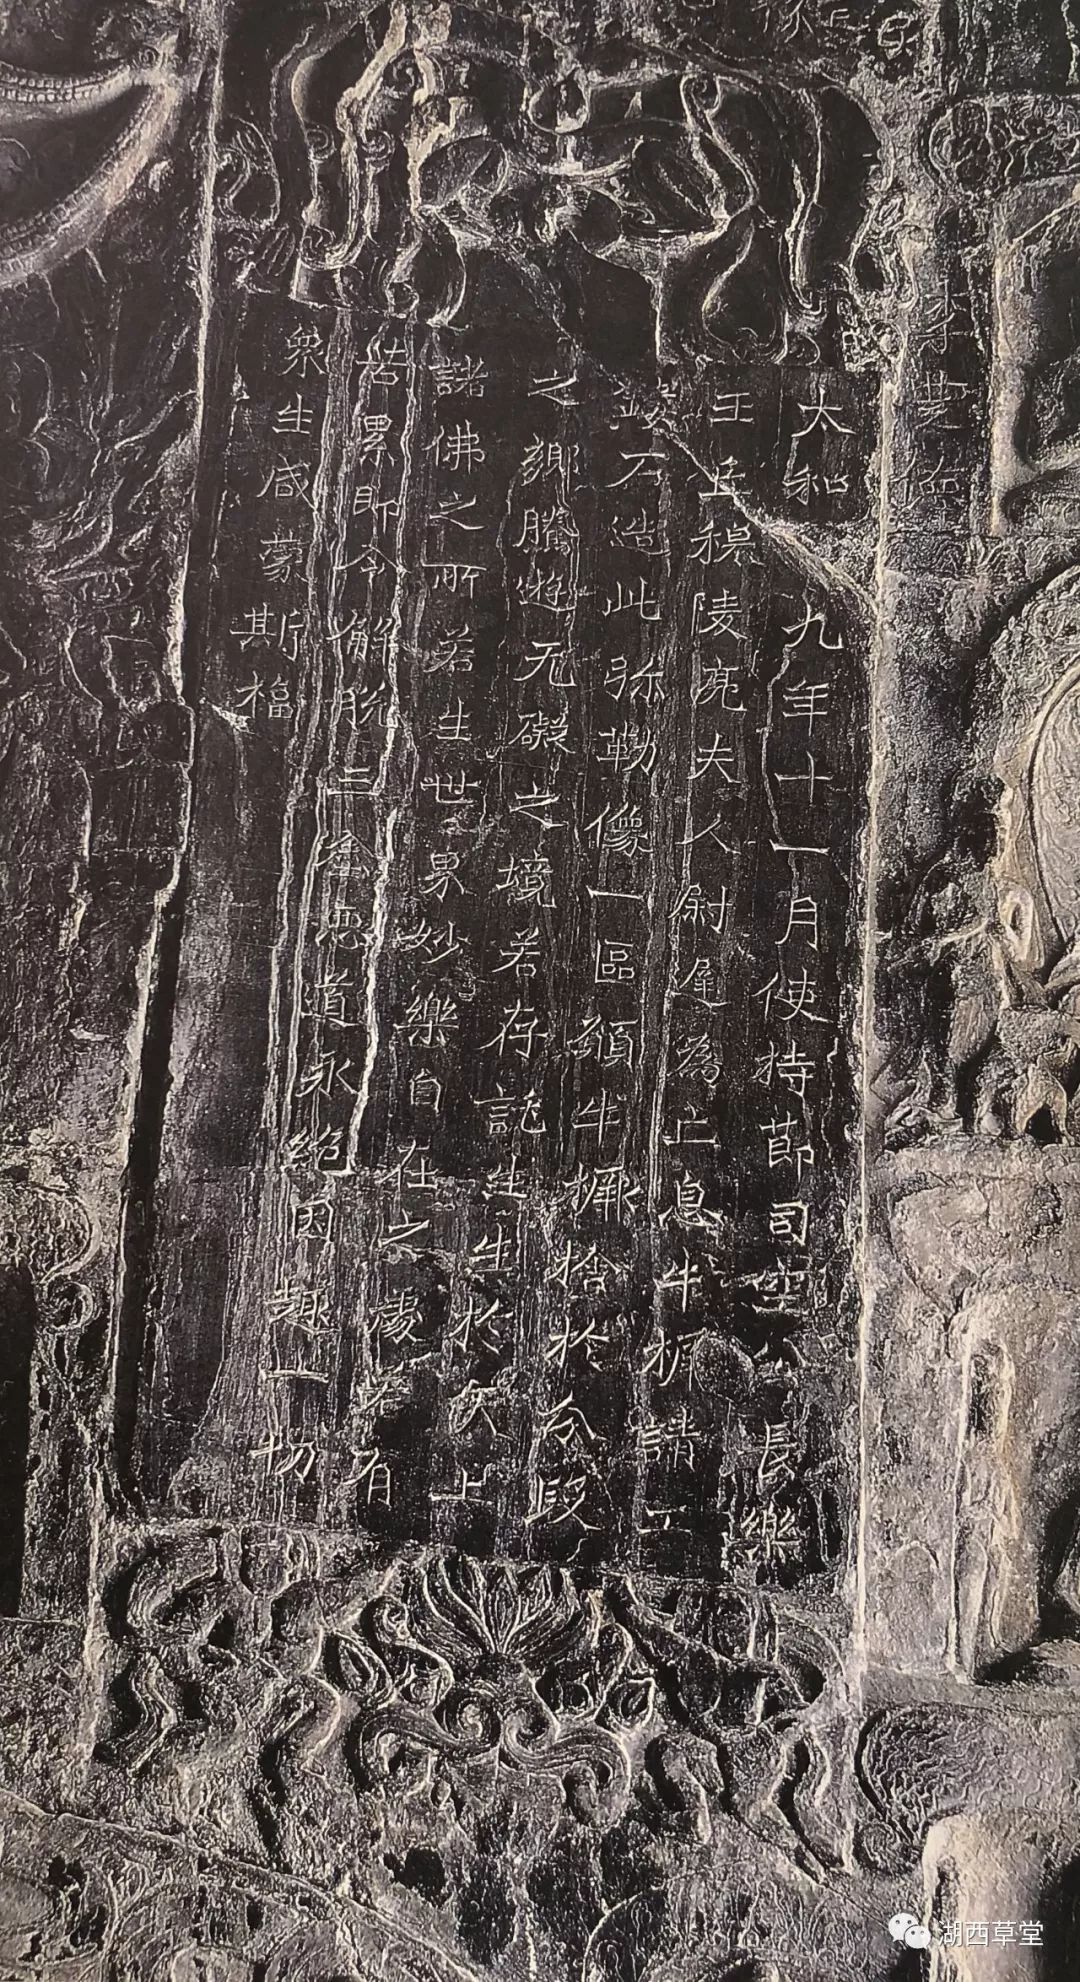 太和九年十一月使持節司空公長樂
王丘穆陵亮夫人尉遲為亡息牛橛請工
鏤石造此弥勒像一區願牛橛捨於分段
之鄉騰遊无礙之境若存託生生於天上
諸佛之所若生世界妙樂自在之處若有
苦累即令解脫三塗惡道永絕因趣一切
眾生咸蒙斯福
湖西草堂